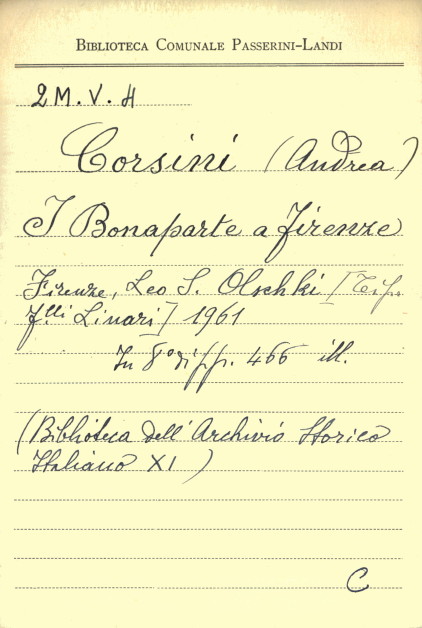 BIBLIOTECA COMUNALE PASSERINI-LANDI
2 M. V. 4
Corsini (Andrea)
I Bonaparte a Firenze
Firenze, Leo S. Olschki [Tip.
F.lli Linari] 1961
In 8° di pp. 466 ill.
(Biblioteca dell'Archivio Storico
Italiano XI )
C